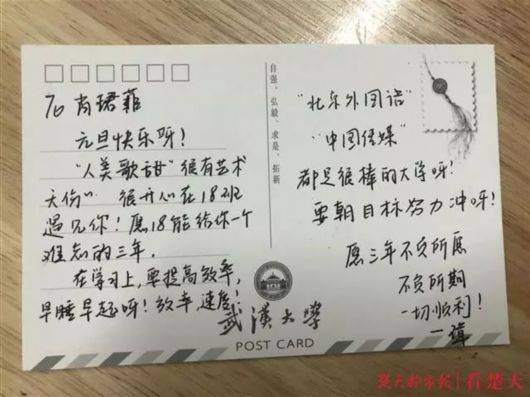 To 肖珺菲
元旦快乐呀！
"人美歌甜" 很有艺术
天份 很开心在18班
遇见你！愿18能给你一个
难忘的三年.
在学习上,要提高效率,
早睡早起呀！效率,速度.
自强、弘毅、求是、拓新
武漢大學
POST CARD
"北京外国语"
"中国传媒"
都是很棒的大学呀！
要朝目标努力冲呀！
愿三年不负所愿
不负所期
一切顺利！
楚天都市报|看楚天